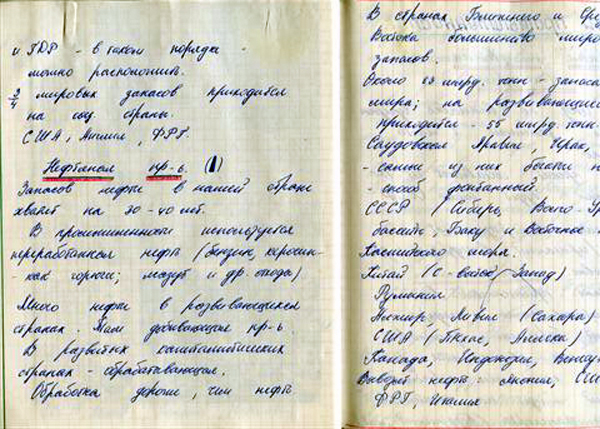 и ГДР - в таком порядке
можно расположить.
3/4 мировых запасов приходится
на соц. страны.
США, Англия, ФРГ.
Нефтяная пр-ь. (1)
Запасов нефти в нашей стране
хватит на 30-40 лет.
В промышленности используется
переработанная нефть (бензин, керосин -
- как горючие; мазут и др. отходы)
Много нефти в развивающихся
странах. Там добывающая пр-ь
В развитых капиталистических
странах - обрабатывающая.
Обработка дороже, чем нефть.
В странах Ближнего и Сре
Востока большинство миро
запасов.
Около 69 млрд. тонн - запаса
мира; на развивающиес
приходится - 55 млрд. тонн
Саудовская Аравия, Ирак,
- самые из них богаты н
- способ фонтанный.
СССР (Сибирь, Волго-Ур
бассейн Баку и Восточное
Каспийского моря.
Китай (С-восток, Запад)
Румыния
Алжир, Ливия (Сахара)
США (Техас, Аляска)
Канада, Индонезия, Венесу
Ввозят нефть: Япония, СШ
ФРГ, Италия